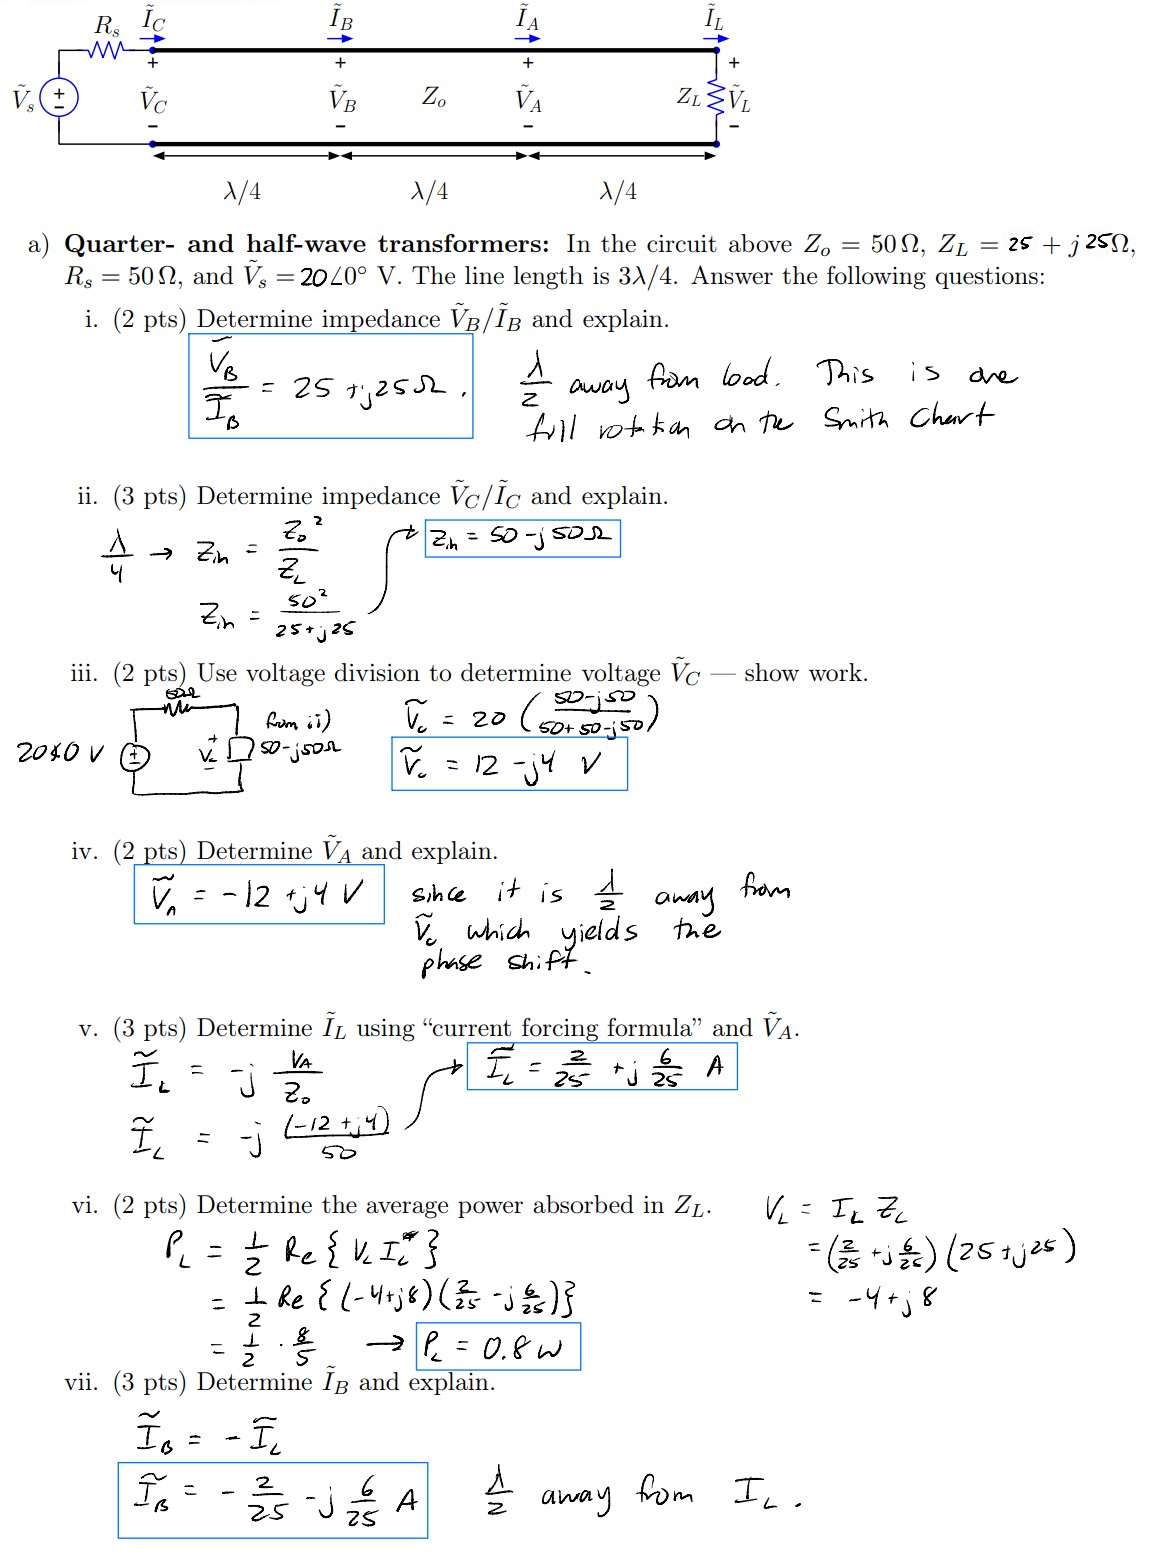 R_s Ĩ_C Ĩ_B Ĩ_A Ĩ_L
+ + + +
Ṽ_s + − Ṽ_C Ṽ_B Z_o Ṽ_A Z_L Ṽ_L
− − − −
λ/4 λ/4 λ/4
a) Quarter- and half-wave transformers: In the circuit above Z_o = 50 Ω, Z_L = 25 + j 25Ω,
R_s = 50 Ω, and Ṽ_s = 20∠0° V. The line length is 3λ/4. Answer the following questions:
i. (2 pts) Determine impedance Ṽ_B/Ĩ_B and explain.
Ṽ_B/Ĩ_B = 25 + j25 Ω. λ/2 away from load. This is one
full rotation on the Smith Chart
ii. (3 pts) Determine impedance Ṽ_C/Ĩ_C and explain.
λ/4 → Z_in = Z_o²/Z_L → Z_in = 50 - j50Ω
Z_in = 50²/(25+j25)
iii. (2 pts) Use voltage division to determine voltage Ṽ_C — show work.
50Ω
20∠0 V + − + V_c − from ii) 50-j50Ω
Ṽ_c = 20 ( (50-j50)/(50+50-j50) )
Ṽ_c = 12 - j4 V
iv. (2 pts) Determine Ṽ_A and explain.
Ṽ_A = -12 + j4 V since it is λ/2 away from
Ṽ_c which yields the
phase shift.
v. (3 pts) Determine Ĩ_L using “current forcing formula” and Ṽ_A.
Ĩ_L = -j V_A/Z_o → Ĩ_L = 2/25 + j 6/25 A
Ĩ_L = -j (-12 + j4)/50
vi. (2 pts) Determine the average power absorbed in Z_L.
V_L = I_L Z_L
= (2/25 + j 6/25) (25 + j25)
= -4 + j8
P_L = 1/2 Re { V_L I_L* }
= 1/2 Re { (-4+j8) (2/25 - j 6/25) }
= 1/2 · 8/5 → P_L = 0.8 W
vii. (3 pts) Determine Ĩ_B and explain.
Ĩ_B = - Ĩ_L
Ĩ_B = - 2/25 - j 6/25 A λ/2 away from I_L.